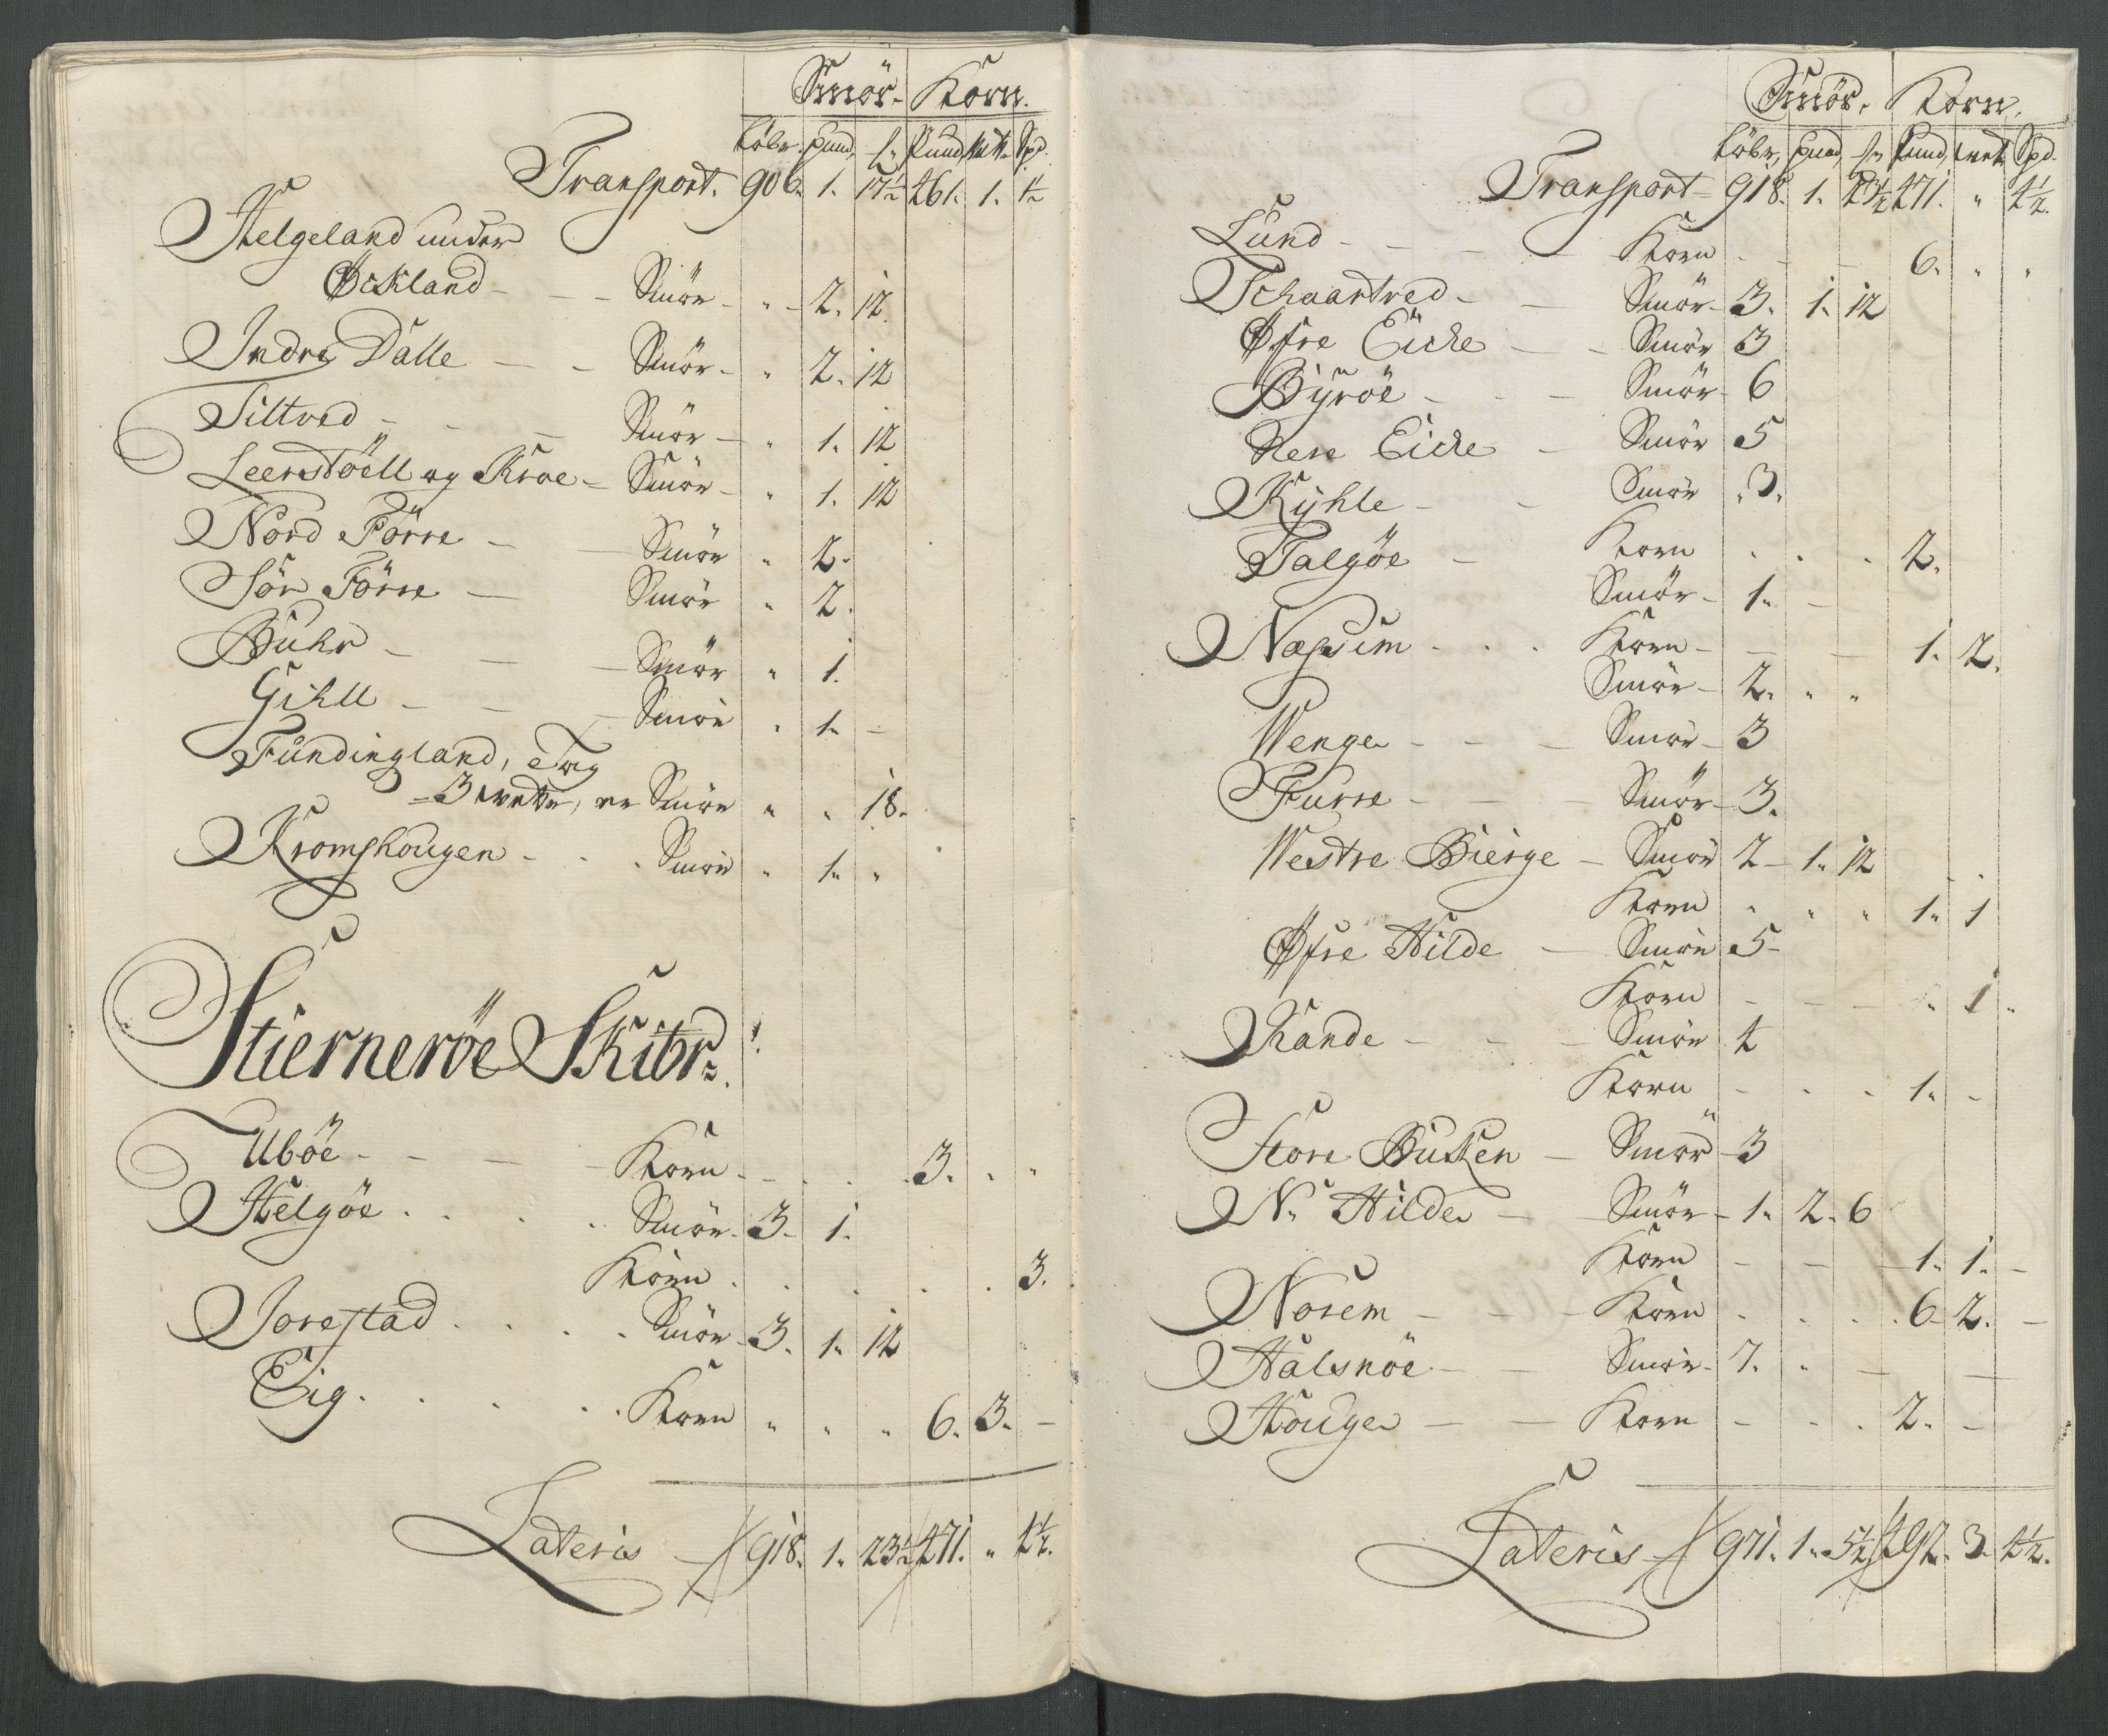 Smör. Korn.
Löbr. pund, ℔ Pund, Wett. Spd.
Transport. 906. 1. 17½ 461. 1. 1½
Helgeland under
Öckland - - - Smör - " - 2. 12.
Indre Dalle - - Smör - " 2. 12
Tiltved - - - Smör - " 1. 12
Leerstöell og Kroe - Smör - " 1. 12
Nord Förre - - Smör " 2.
Sör Förre - Smör " 2.
Buhr - - - Smör " 1.
Gihll - - - Smör " 1. -
Fundingland, Tag
3 wetter, er Smör " " 18.
Kromshougen - . . Smör " 1. "
Stierneröe Skibr.
Uböe - - - - Korn - . . 3. . "
Helgöe . . . . Smör. 3. 1.
Korn . . . . . 3.
Jorestad . . . . Smör. 3. 1. 12
Eig . . . . . Korn " " " 6. 3. -
Lateris 918. 1. 23½ 471. " 4½.
Smör. Korn.
Löbr, pund, ℔ Pund, Wett. Spd.
Transport 918. 1. 23½ 471. " 4½.
Lund - - - - Korn - - - 6. " "
Schaartved - - Smör. 3. 1. 12
Øfre Eicke - - Smör 3
Byröe - - - Smör. 6
Nere Eicke - Smör 5
Kyhle - - Smör " 3.
Talgöe - Korn . . . 2.
Smör - 1. -
Nessim - . . Korn - - - 1. 2.
Smör - 2. " "
Wenge - - - Smör - 3
Furre - - - Smör - 3.
Westre Bierge - Smör 2 - 1. 12
Korn " " " 1. 1
Øfre Hilde - Smör 5 -
Korn - - - " 1.
Rande - - - Smör 4
Korn - . . 1. -
Store Bucken - Smör - 3
N. Hilde - - Smör - 1. 2. 6
Korn - - - 1. 1. -
Norem - - - Korn . . . 6. 2. -
Halsnöe - - Smör - 7. " - -
Houge - - Korn - - . 2. -
Lateris 971. 1. 5½ 492. 3. 4½.